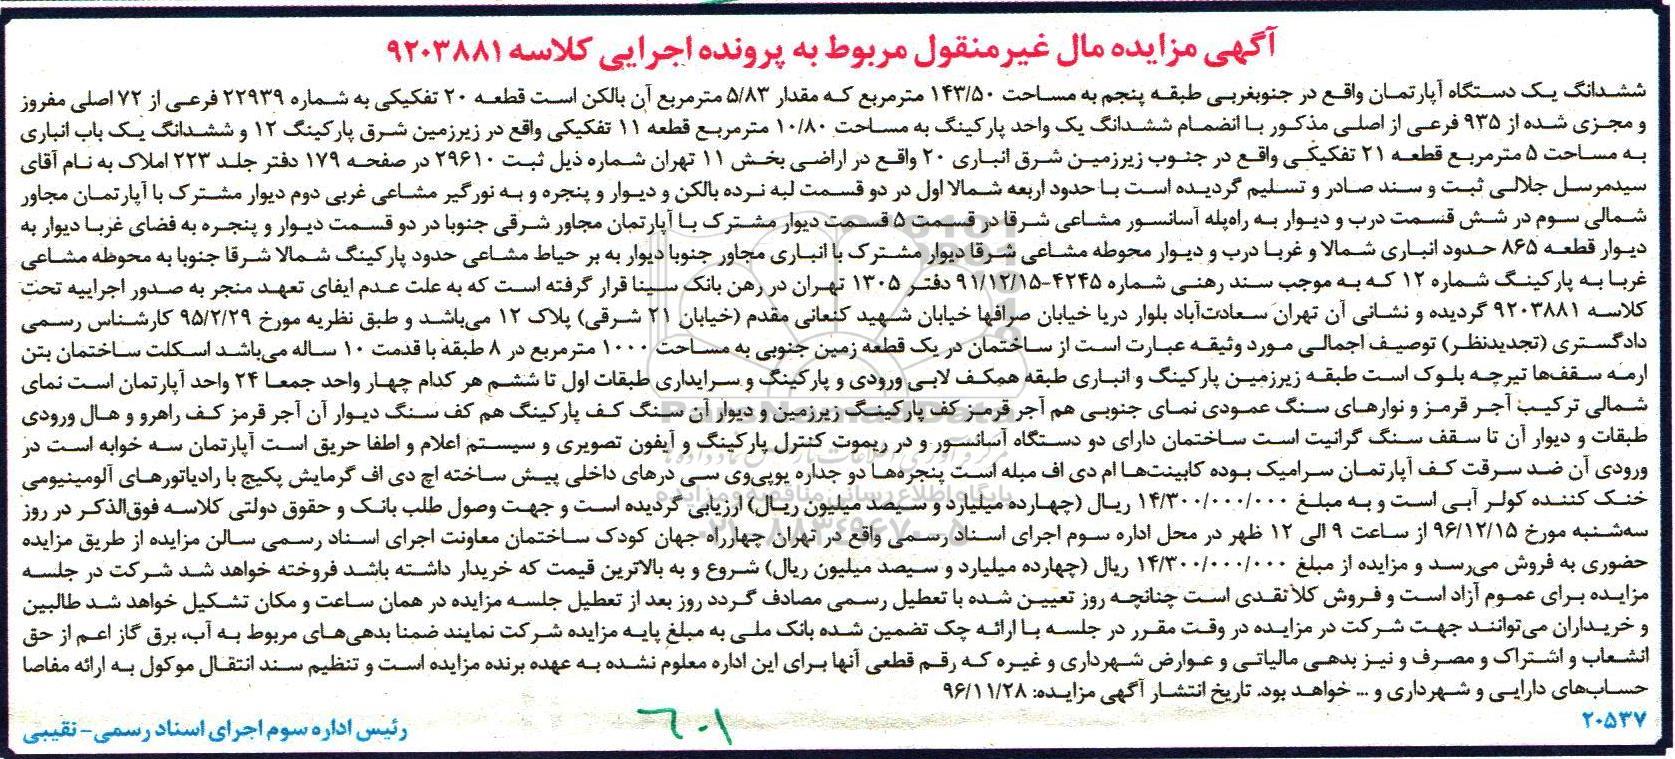 آگهی مزایده مال غیرمنقول مربوط به پرونده اجرایی کلاسه ۹۲۰۳۸۸۱
ششدانگ یک دستگاه آپارتمان واقع در جنوبغربی طبقه پنجم به مساحت ۱۴۳/۵۰ مترمربع که مقدار ۵/۸۳ مترمربع آن بالکن است قطعه ۲۰ تفکیکی به شماره ۲۲۹۳۹ فرعی از ۷۲ اصلی مفروز
و مجزی شده از ۹۳۵ فرعی از اصلی مذکور با انضمام ششدانگ یک واحد پارکینگ به مساحت ۱۰/۸۰ مترمربع قطعه ۱۱ تفکیکی واقع در زیرزمین شرق پارکینگ ۱۲ و ششدانگ یک باب انباری
به مساحت ۵ مترمربع قطعه ۲۱ تفکیکی واقع در جنوب زیرزمین شرق انباری ۲۰ واقع در اراضی بخش ۱۱ تهران شماره ذیل ثبت ۲۹۶۱۰ در صفحه ۱۷۹ دفتر جلد ۲۲۳ املاک به نام آقای
سیدمرسل جلالی ثبت و سند صادر و تسلیم گردیده است با حدود اربعه شمالا اول در دو قسمت لبه نرده بالکن و دیوار و پنجره و به نورگیر مشاعی غربی دوم دیوار مشترک با آپارتمان مجاور
شمالی سوم در شش قسمت درب و دیوار به راه‌پله آسانسور مشاعی شرقا در قسمت ۵ قسمت دیوار مشترک با آپارتمان مجاور شرقی جنوبا در دو قسمت دیوار و پنجره به فضای غربا دیوار به
دیوار قطعه ۸۶۵ حدود انباری شمالا و غربا درب و دیوار محوطه مشاعی شرقا دیوار مشترک با انباری مجاور جنوبا دیوار به بر حیاط مشاعی حدود پارکینگ شمالا شرقا جنوبا به محوطه مشاعی
غربا به پارکینگ شماره ۱۲ که به موجب سند رهنی شماره ۴۲۴۵-۹۱/۱۲/۱۵ دفتر ۱۳۰۵ تهران در رهن بانک سینا قرار گرفته است که به علت عدم ایفای تعهد منجر به صدور اجراییه تحت
کلاسه ۹۲۰۳۸۸۱ گردیده و نشانی آن تهران سعادت‌آباد بلوار دریا خیابان صرافها خیابان شهید کنعانی مقدم (خیابان ۲۱ شرقی) پلاک ۱۲ می‌باشد و طبق نظریه مورخ ۹۵/۲/۲۹ کارشناس رسمی
دادگستری (تجدیدنظر) توصیف اجمالی مورد وثیقه عبارت است از ساختمان در یک قطعه زمین جنوبی به مساحت ۱۰۰۰ مترمربع در ۸ طبقه با قدمت ۱۰ ساله می‌باشد اسکلت ساختمان بتن
ارمه سقف‌ها تیرچه بلوک است طبقه زیرزمین پارکینگ و انباری طبقه همکف لابی ورودی و پارکینگ و سرایداری طبقات اول تا ششم هر کدام چهار واحد جمعا ۲۴ واحد آپارتمان است نمای
شمالی ترکیب آجر قرمز و نوارهای سنگ عمودی نمای جنوبی هم آجر قرمز کف پارکینگ زیرزمین و دیوار آن سنگ کف پارکینگ هم کف سنگ دیوار آن آجر قرمز کف راهرو و هال ورودی
طبقات و دیوار آن تا سقف سنگ گرانیت است ساختمان دارای دو دستگاه آسانسور و در ریموت کنترل پارکینگ و آیفون تصویری و سیستم اعلام و اطفا حریق است آپارتمان سه خوابه است در
ورودی آن ضد سرقت کف آپارتمان سرامیک بوده کابینت‌ها ام دی اف مبله است پنجره‌ها دو جداره یوپی‌وی سی درهای داخلی پیش ساخته اچ دی اف گرمایش پکیج با رادیاتورهای آلومینیومی
خنک کننده کولر آبی است و به مبلغ ۱۴/۳۰۰/۰۰۰/۰۰۰ ریال (چهارده میلیارد و سیصد میلیون ریال) ارزیابی گردیده است و جهت وصول طلب بانک و حقوق دولتی کلاسه فوق‌الذکر در روز
سه‌شنبه مورخ ۹۶/۱۲/۱۵ از ساعت ۹ الی ۱۲ ظهر در محل اداره سوم اجرای اسناد رسمی واقع در تهران چهارراه جهان کودک ساختمان معاونت اجرای اسناد رسمی سالن مزایده از طریق مزایده
حضوری به فروش می‌رسد و مزایده از مبلغ ۱۴/۳۰۰/۰۰۰/۰۰۰ ریال (چهارده میلیارد و سیصد میلیون ریال) شروع و به بالاترین قیمت که خریدار داشته باشد فروخته خواهد شد شرکت در جلسه
مزایده برای عموم آزاد است و فروش کلا نقدی است چنانچه روز تعیین شده با تعطیل رسمی مصادف گردد روز بعد از تعطیل جلسه مزایده در همان ساعت و مکان تشکیل خواهد شد طالبین
و خریداران می‌توانند جهت شرکت در مزایده در وقت مقرر در جلسه با ارائه چک تضمین شده بانک ملی به مبلغ پایه مزایده شرکت نمایند ضمنا بدهی‌های مربوط به آب، برق گاز اعم از حق
انشعاب و اشتراک و مصرف و نیز بدهی مالیاتی و عوارض شهرداری و غیره که رقم قطعی آنها برای این اداره معلوم نشده به عهده برنده مزایده است و تنظیم سند انتقال موکول به ارائه مفاصا
حساب‌های دارایی و شهرداری و ... خواهد بود. تاریخ انتشار آگهی مزایده: ۹۶/۱۱/۲۸
۲۰۵۳۷
رئیس اداره سوم اجرای اسناد رسمی- نقیبی